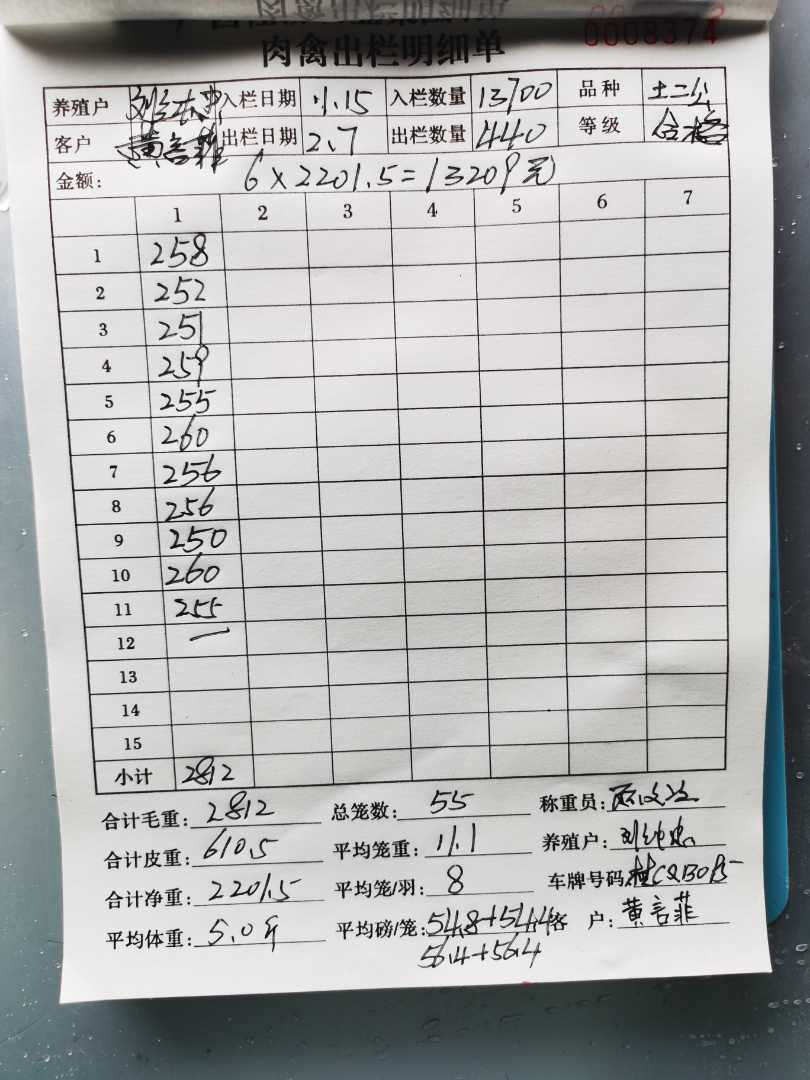 肉禽出栏明细单
0008374
养殖户 入栏日期 11.15 入栏数量 13700 品种 土二公
客户 黄言菲 出栏日期 2.7 出栏数量 440 等级 合格
金额: 6×2201.5=13209元
1 2 3 4 5 6 7
1 258
2 252
3 251
4 259
5 255
6 260
7 256
8 256
9 250
10 260
11 255
12 —
13
14
15
小计 2812
合计毛重: 2812 总笼数: 55 称重员:
合计皮重: 610.5 平均笼重: 11.1 养殖户:
合计净重: 2201.5 平均笼/羽: 8 车牌号码:
平均体重: 5.0斤 平均磅/笼: 54.8+54.4 客 户: 黄言菲
56.4+56.4